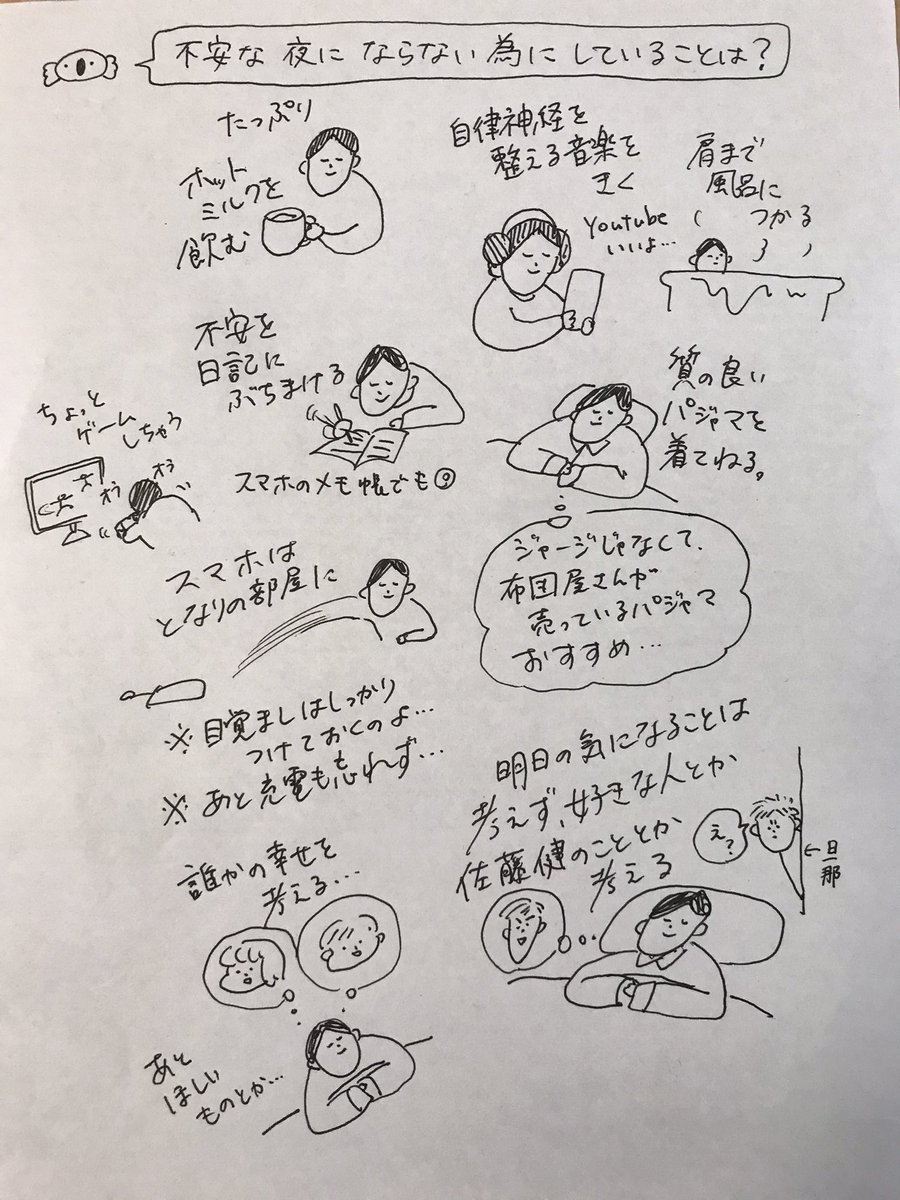 不安な夜にならない為にしていることは?
たっぷり
ホット
ミルクを
飲む
自律神経を
整える音楽を
きく
Youtube
いいよ…
肩まで
風呂に
つかる
不安を
日記に
ぶちまける
スマホのメモ帳でも
ちょっと
ゲーム
しちゃう
オラ
オラ
質の良い
パジャマを
着てねる。
ジャージじゃなくて、
布団屋さんが
売っているパジャマ
おすすめ…
スマホは
となりの部屋に
※目覚ましはしっかり
つけておくのよ…
※あと充電も忘れず…
明日の気になることは
考えず、好きな人とか
佐藤健のこととか
考える
え?
←旦那
誰かの幸せを
考える…
あと
ほしい
ものとか…